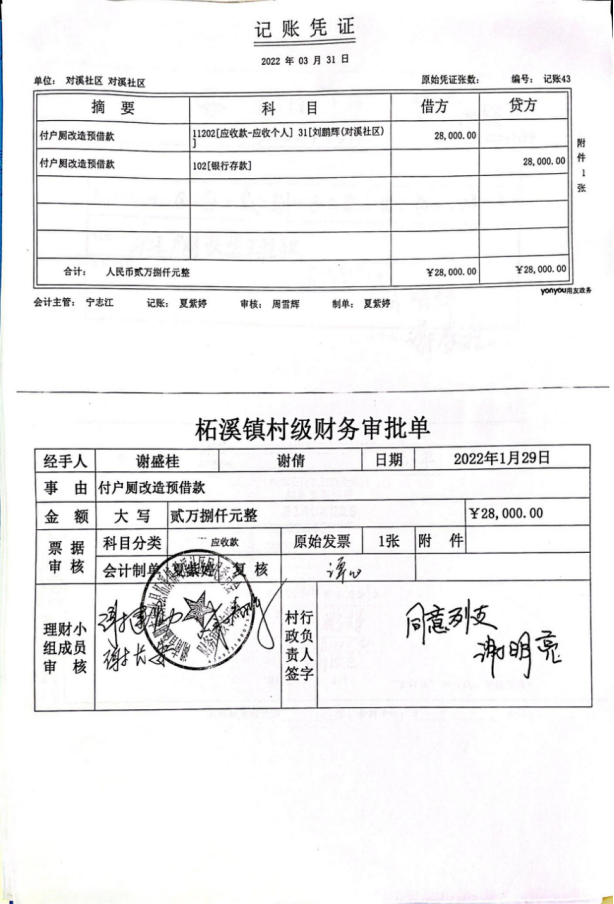 记账凭证
2022 年 03 月 31 日
单位: 对溪社区 对溪社区 原始凭证张数: 编号: 记账43
摘 要 科 目 借方 贷方
付户厕改造预借款 11202[应收款-应收个人] 31[刘鹏辉(对溪社区) 28,000.00
]
付户厕改造预借款 102[银行存款] 28,000.00
附件 1 张
合计: 人民币贰万捌仟元整 ¥28,000.00 ¥28,000.00
yonyou用友政务
会计主管: 宁志江 记账: 夏紫婷 审核: 周雪辉 制单: 夏紫婷
柘溪镇村级财务审批单
经手人 谢盛桂 谢倩 日期 2022年1月29日
事 由 付户厕改造预借款
金 额 大 写 贰万捌仟元整 ¥28,000.00
票 据 审 核 科目分类 应收款 原始发票 1张 附 件
会计制单 夏紫婷 复 核
理财小组成员审 核
村行政负责人签字
同意列支
谢明亮